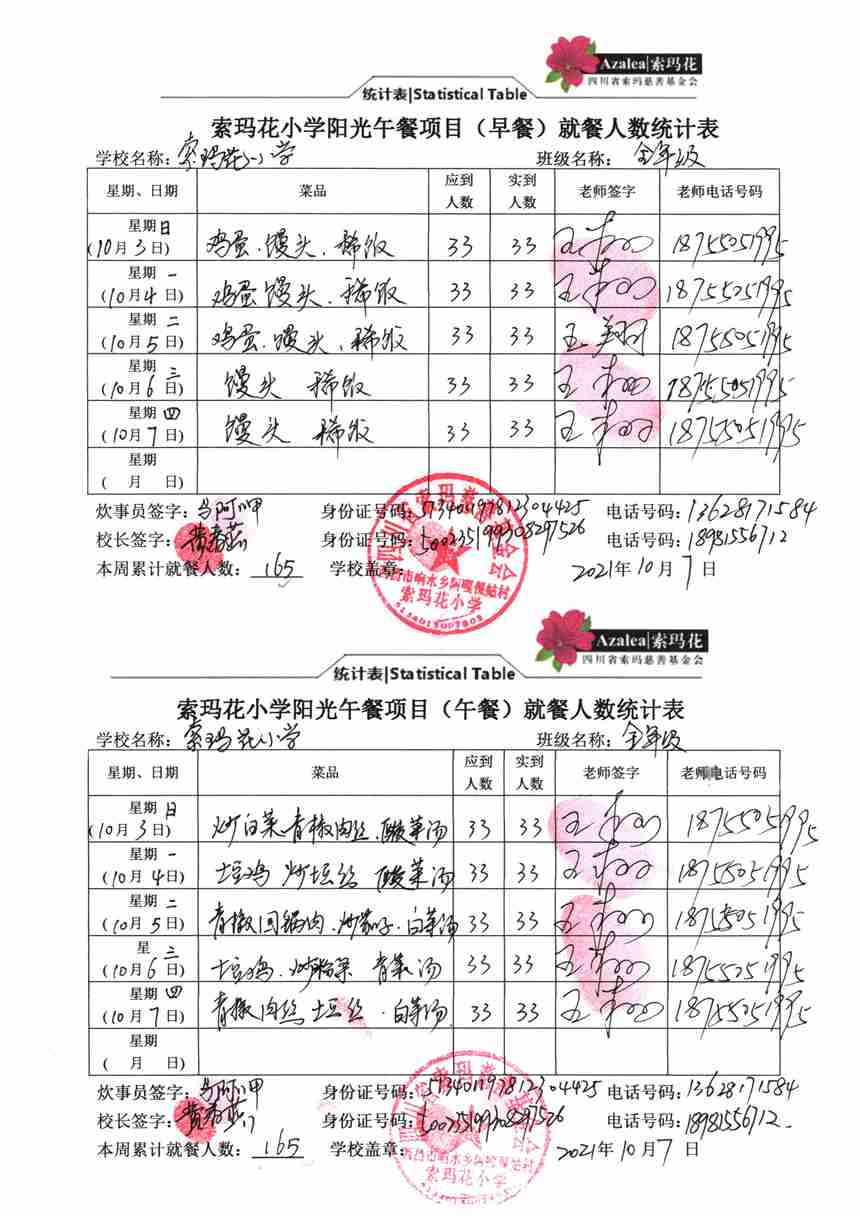 Azalea|索玛花
四川省索玛慈善基金会
统计表|Statistical Table
索玛花小学阳光午餐项目（早餐）就餐人数统计表
学校名称：索玛花小学 班级名称：全年级
星期、日期 菜品 应到人数 实到人数 老师签字 老师电话号码
星期日
(10月3日) 鸡蛋.馒头.稀饭 33 33 王 18755051995
星期一
(10月4日) 鸡蛋馒头.稀饭 33 33 王 18755051995
星期二
(10月5日) 鸡蛋.馒头、稀饭 33 33 王翔 18755051995
星期三
(10月6日) 馒头 稀饭 33 33 王 18755051995
星期四
(10月7日) 馒头 稀饭 33 33 王 18755051995
星期
( 月 日)
炊事员签字： 身份证号码：513401197812304425 电话号码：13628171584
校长签字： 身份证号码：500235199308297526 电话号码：18981556712
本周累计就餐人数：165 学校盖章： 2021年10月7日
索玛花小学
Azalea|索玛花
四川省索玛慈善基金会
统计表|Statistical Table
索玛花小学阳光午餐项目（午餐）就餐人数统计表
学校名称：索玛花小学 班级名称：全年级
星期、日期 菜品 应到人数 实到人数 老师签字 老师电话号码
星期日
(10月3日) 炒白菜青椒肉丝.酸菜汤 33 33 王 18755051995
星期一
(10月4日) 土豆鸡 炒土豆丝 酸菜汤 33 33 王 18755051995
星期二
(10月5日) 青椒回锅肉.炒茄子.白菜汤 33 33 王 18755051995
星 三
(10月6日) 土豆鸡. 青菜汤 33 33 王 18755051995
星期四
(10月7日) 青椒肉丝 土豆丝.白菜汤 33 33 王 18755051995
星期
( 月 日)
炊事员签字： 身份证号码：513401197812304425 电话号码：13628171584
校长签字： 身份证号码：500235199308297526 电话号码：18981556712
本周累计就餐人数：165 学校盖章： 2021年10月7日
索玛花小学